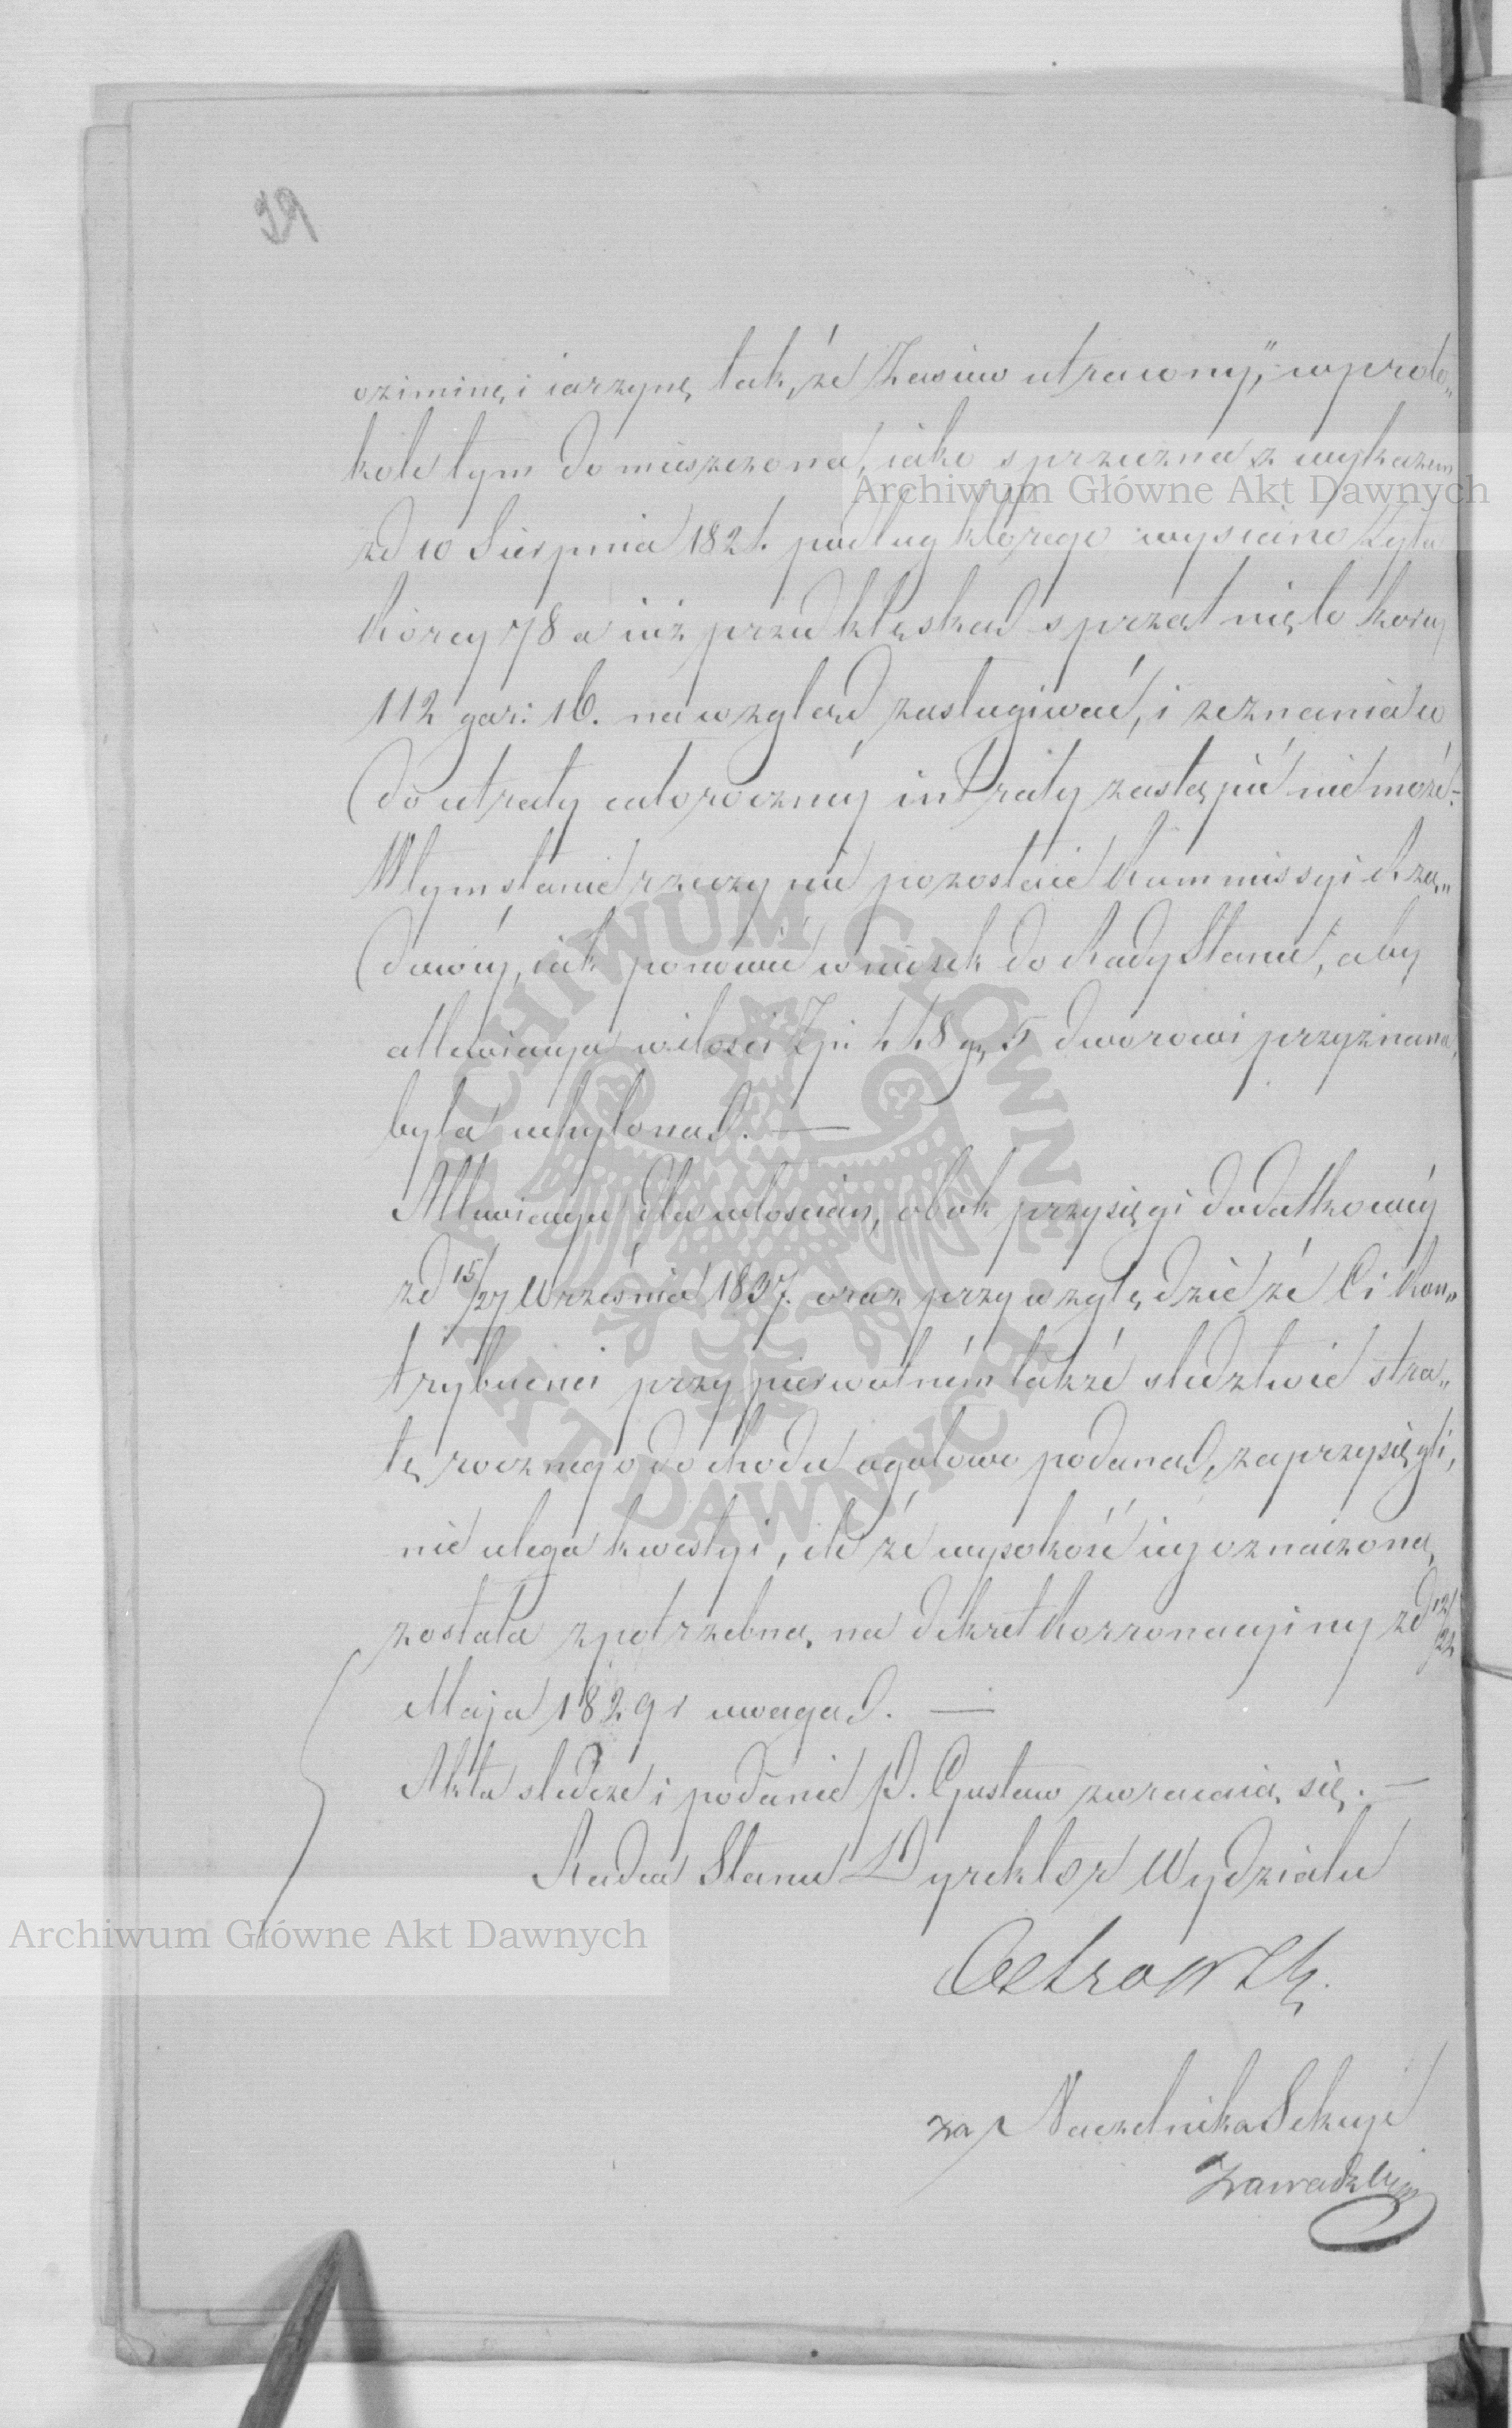 39
oziminę i iarzynę, tak, że "Zasiew utracony," w proto„
kole tym domieszczona, iako sprzeczna z wykazem
zd 10 Sierpnia 1821. podług którego wysiano żyta
Korcy 78 a iuż przed klęską sprzątnięto korcy
112 gar: 16. na wzgląd zasługiwać, i zeznania co
do utraty całoroczney intraty zastąpić nie może.
W tym stanie rzeczy nie pozostaie Kommissyi Rzą„
dowéy, iak ponowić wniosek do Rady Stanu, aby
allewiacya w ilości Zp: 448 gr 5 dworowi przyznana,
była uchyloną. —
Allewiacya dla włościan, obok przysięgi dodatkowéy
zd 15/27 Września 1837. oraz przy względzie że Ci Kon„
trybuenci przy pierwotném także śledztwie stra„
tę rocznego dochodu ogółowo podaną, zaprzysięgli,
nie ulega kwestyi, ile że wysokość iéy oznaczona,
została z potrzebną, na dekret Korronacyiny zd 12/24
Maja 1829 r uwagą. —
Akta śledcze i podanie P. Gustaw zwracaią się. —
Radca Stanu Dyrektor Wydziału
Ostrowski
za Naczelnika Sekcyi
Zawadzki
Archiwum Główne Akt Dawnych
Archiwum Główne Akt Dawnych
ARCHIWUM GŁÓWNE AKT DAWNYCH